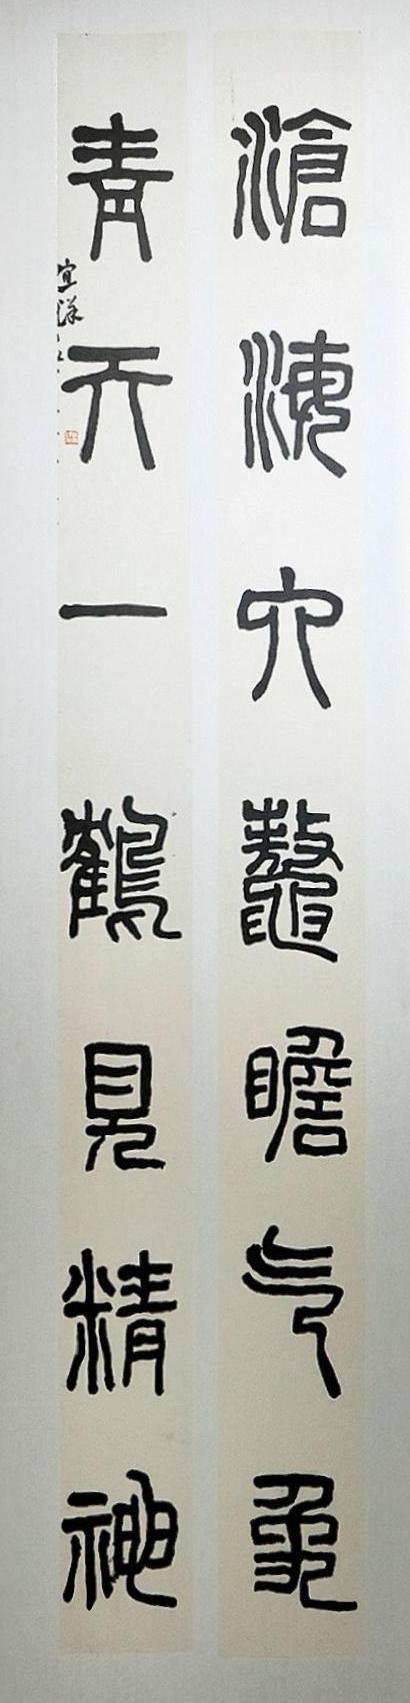 滄海六鼇瞻气象
青天一鶴見精神